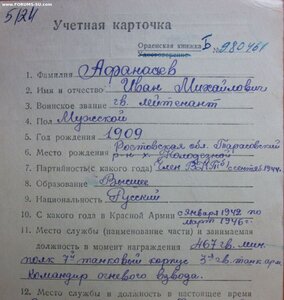 © WWW.FORUMS-SU.COM
5/24
Учетная карточка
Орденская книжка Б № 980461
Удостоверение
1. Фамилия Афанасьев
2. Имя и отчество Иван Михайлович
3. Воинское звание гв. лейтенант
4. Пол Мужской
5. Год рождения 1909
6. Место рождения Ростовская обл. Тарасовский
р-н х. Колодезной
7. Партийность (с какого года) Член ВКП(б) с сентяб. 1944г.
8. Образование Высшее
9. Национальность Русский
10. С какого года в Красной Армии с января 1942 по
март 1946г.
11. Место службы (наименование части) и занимаемая
должность в момент награждения 467 гв. мин.
полк 7й танковый корпус 3-я гв. танк. арм.
Командир огневого взвода.
12. Место службы и должность в настоящее время